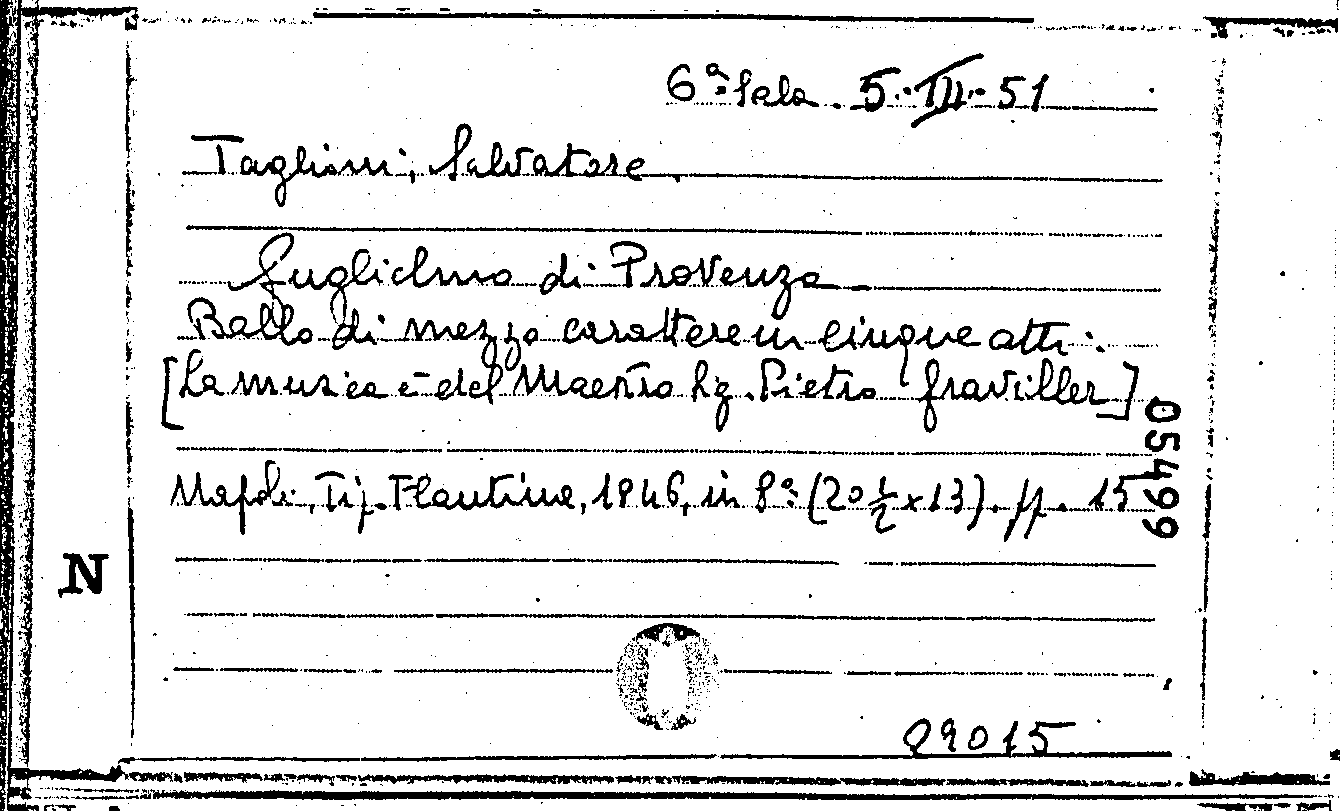 6ª Sala. 5.-III-51
Taglioni, Salvatore.
Guglielmo di Provenza
Ballo di mezzo carattere in cinque atti.
[La musica è del Maestro Sig. Pietro Graviller]
054199
Napoli, Tip. Flautina, 1846, in 8º (20 ½ x 13). pp. 15
N
29015